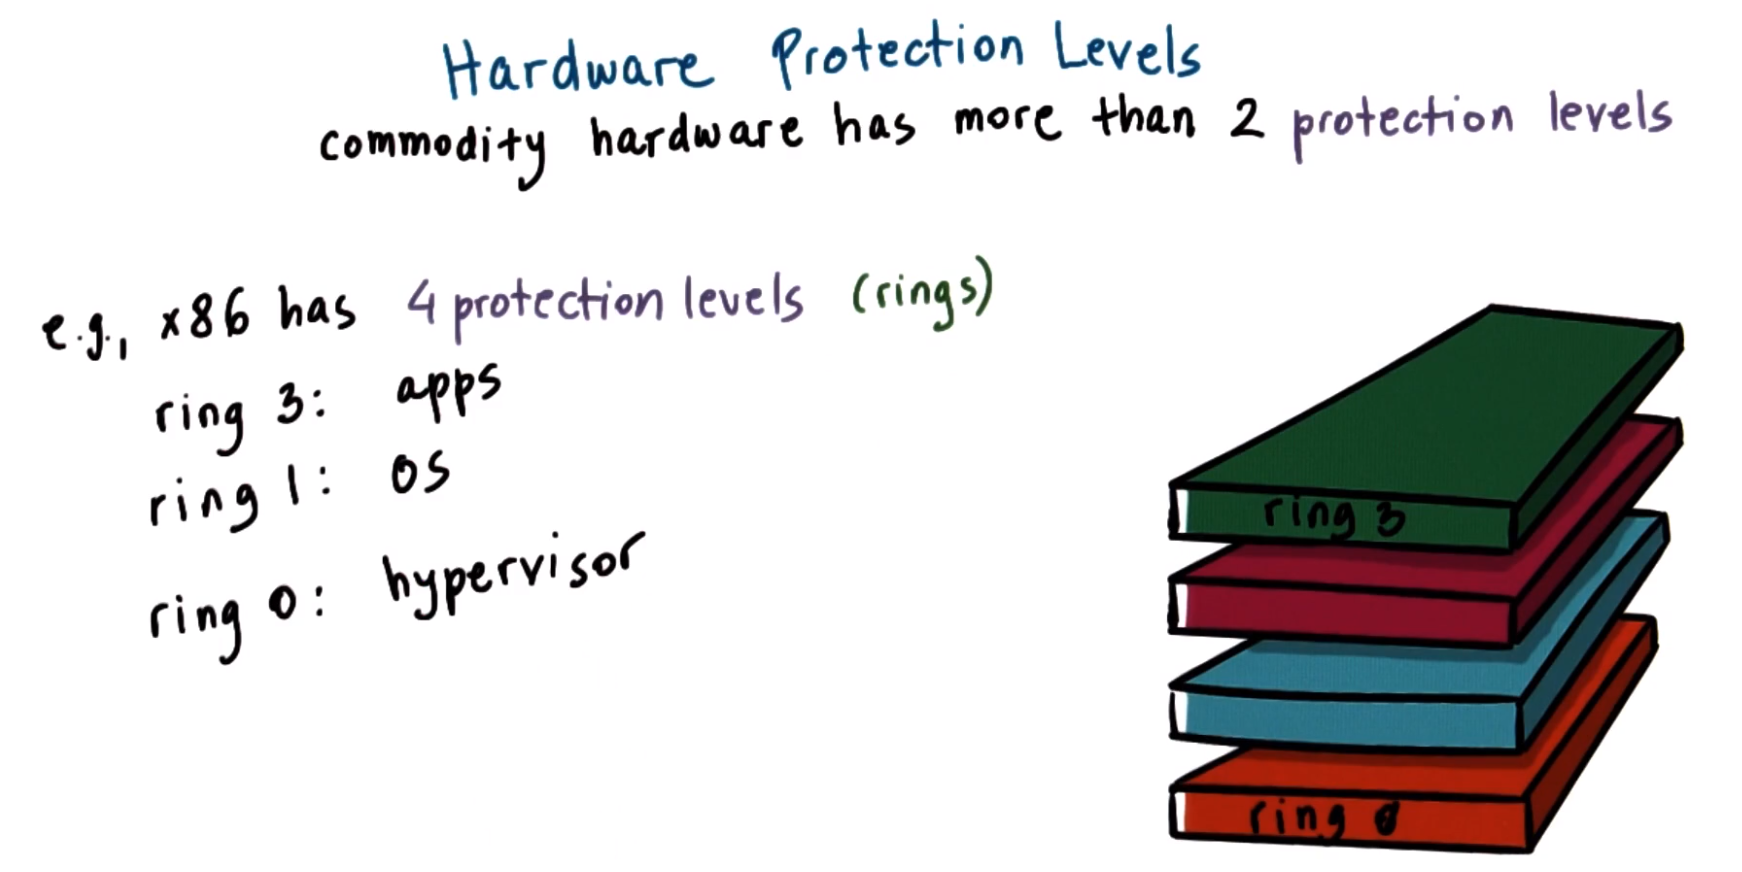 Hardware Protection Levels
commodity hardware has more than 2 protection levels
e.g., x86 has 4 protection levels (rings)
ring 3: apps
ring 1: OS
ring 0: hypervisor
ring 3
ring 0